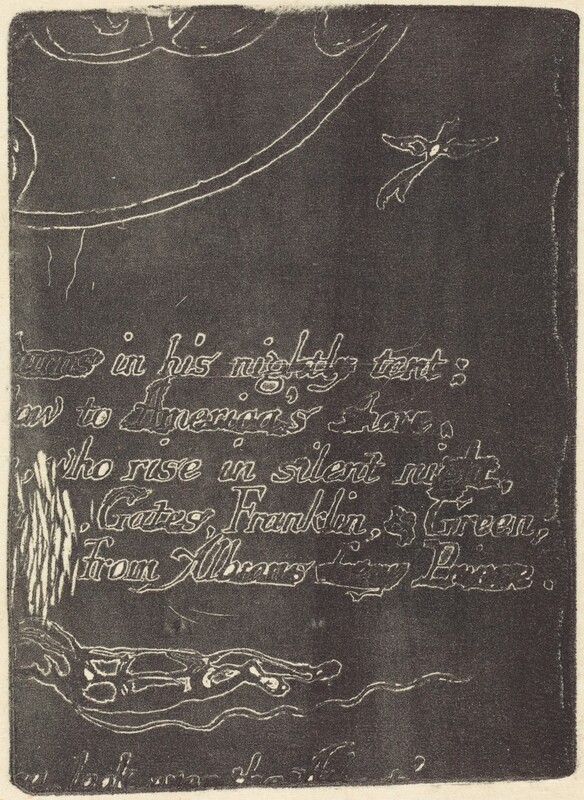 in his nightly tent:
to America's shore.
who rise in silent night,
Gates, Franklin, & Green,
from Albions fiery Prince.
look over the